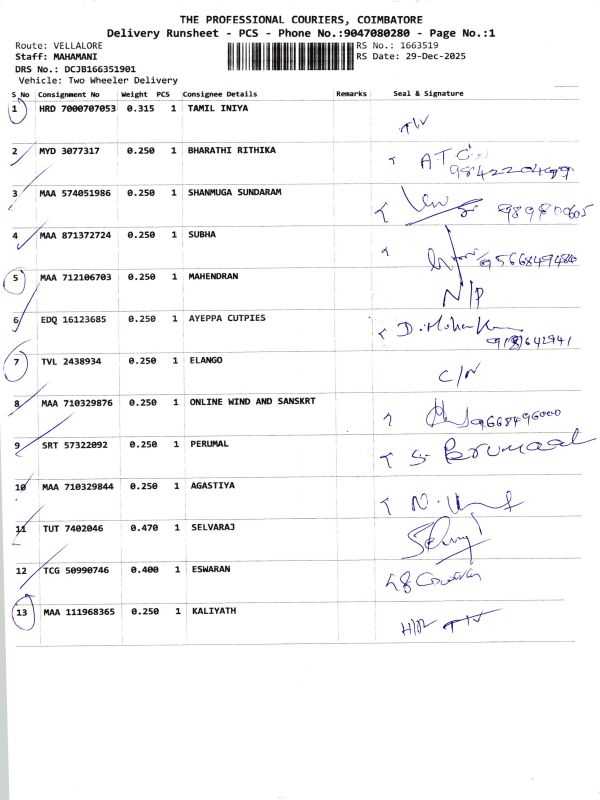 THE PROFESSIONAL COURIERS, COIMBATORE
Delivery Runsheet - PCS - Phone No.:9047080280 - Page No.:1
Route: VELLALORE
RS No.: 1663519
Staff: MAHAMANI
RS Date: 29-Dec-2025
DRS No.: DCJB166351901
Vehicle: Two Wheeler Delivery
S No Consignment No Weight PCS Consignee Details Remarks Seal & Signature
1 HRD 7000707053 0.315 1 TAMIL INIYA
2 MYD 3077317 0.250 1 BHARATHI RITHIKA
3 MAA 574051986 0.250 1 SHANMUGA SUNDARAM
4 MAA 871372724 0.250 1 SUBHA
5 MAA 712106703 0.250 1 MAHENDRAN N/P
6 EDQ 16123685 0.250 1 AYEPPA CUTPIES
7 TVL 2438934 0.250 1 ELANGO C/N
8 MAA 710329876 0.250 1 ONLINE WIND AND SANSKRT 9668496000
9 SRT 57322092 0.250 1 PERUMAL
10 MAA 710329844 0.250 1 AGASTIYA
11 TUT 7402046 0.470 1 SELVARAJ
12 TCG 50990746 0.400 1 ESWARAN
13 MAA 111968365 0.250 1 KALIYATH